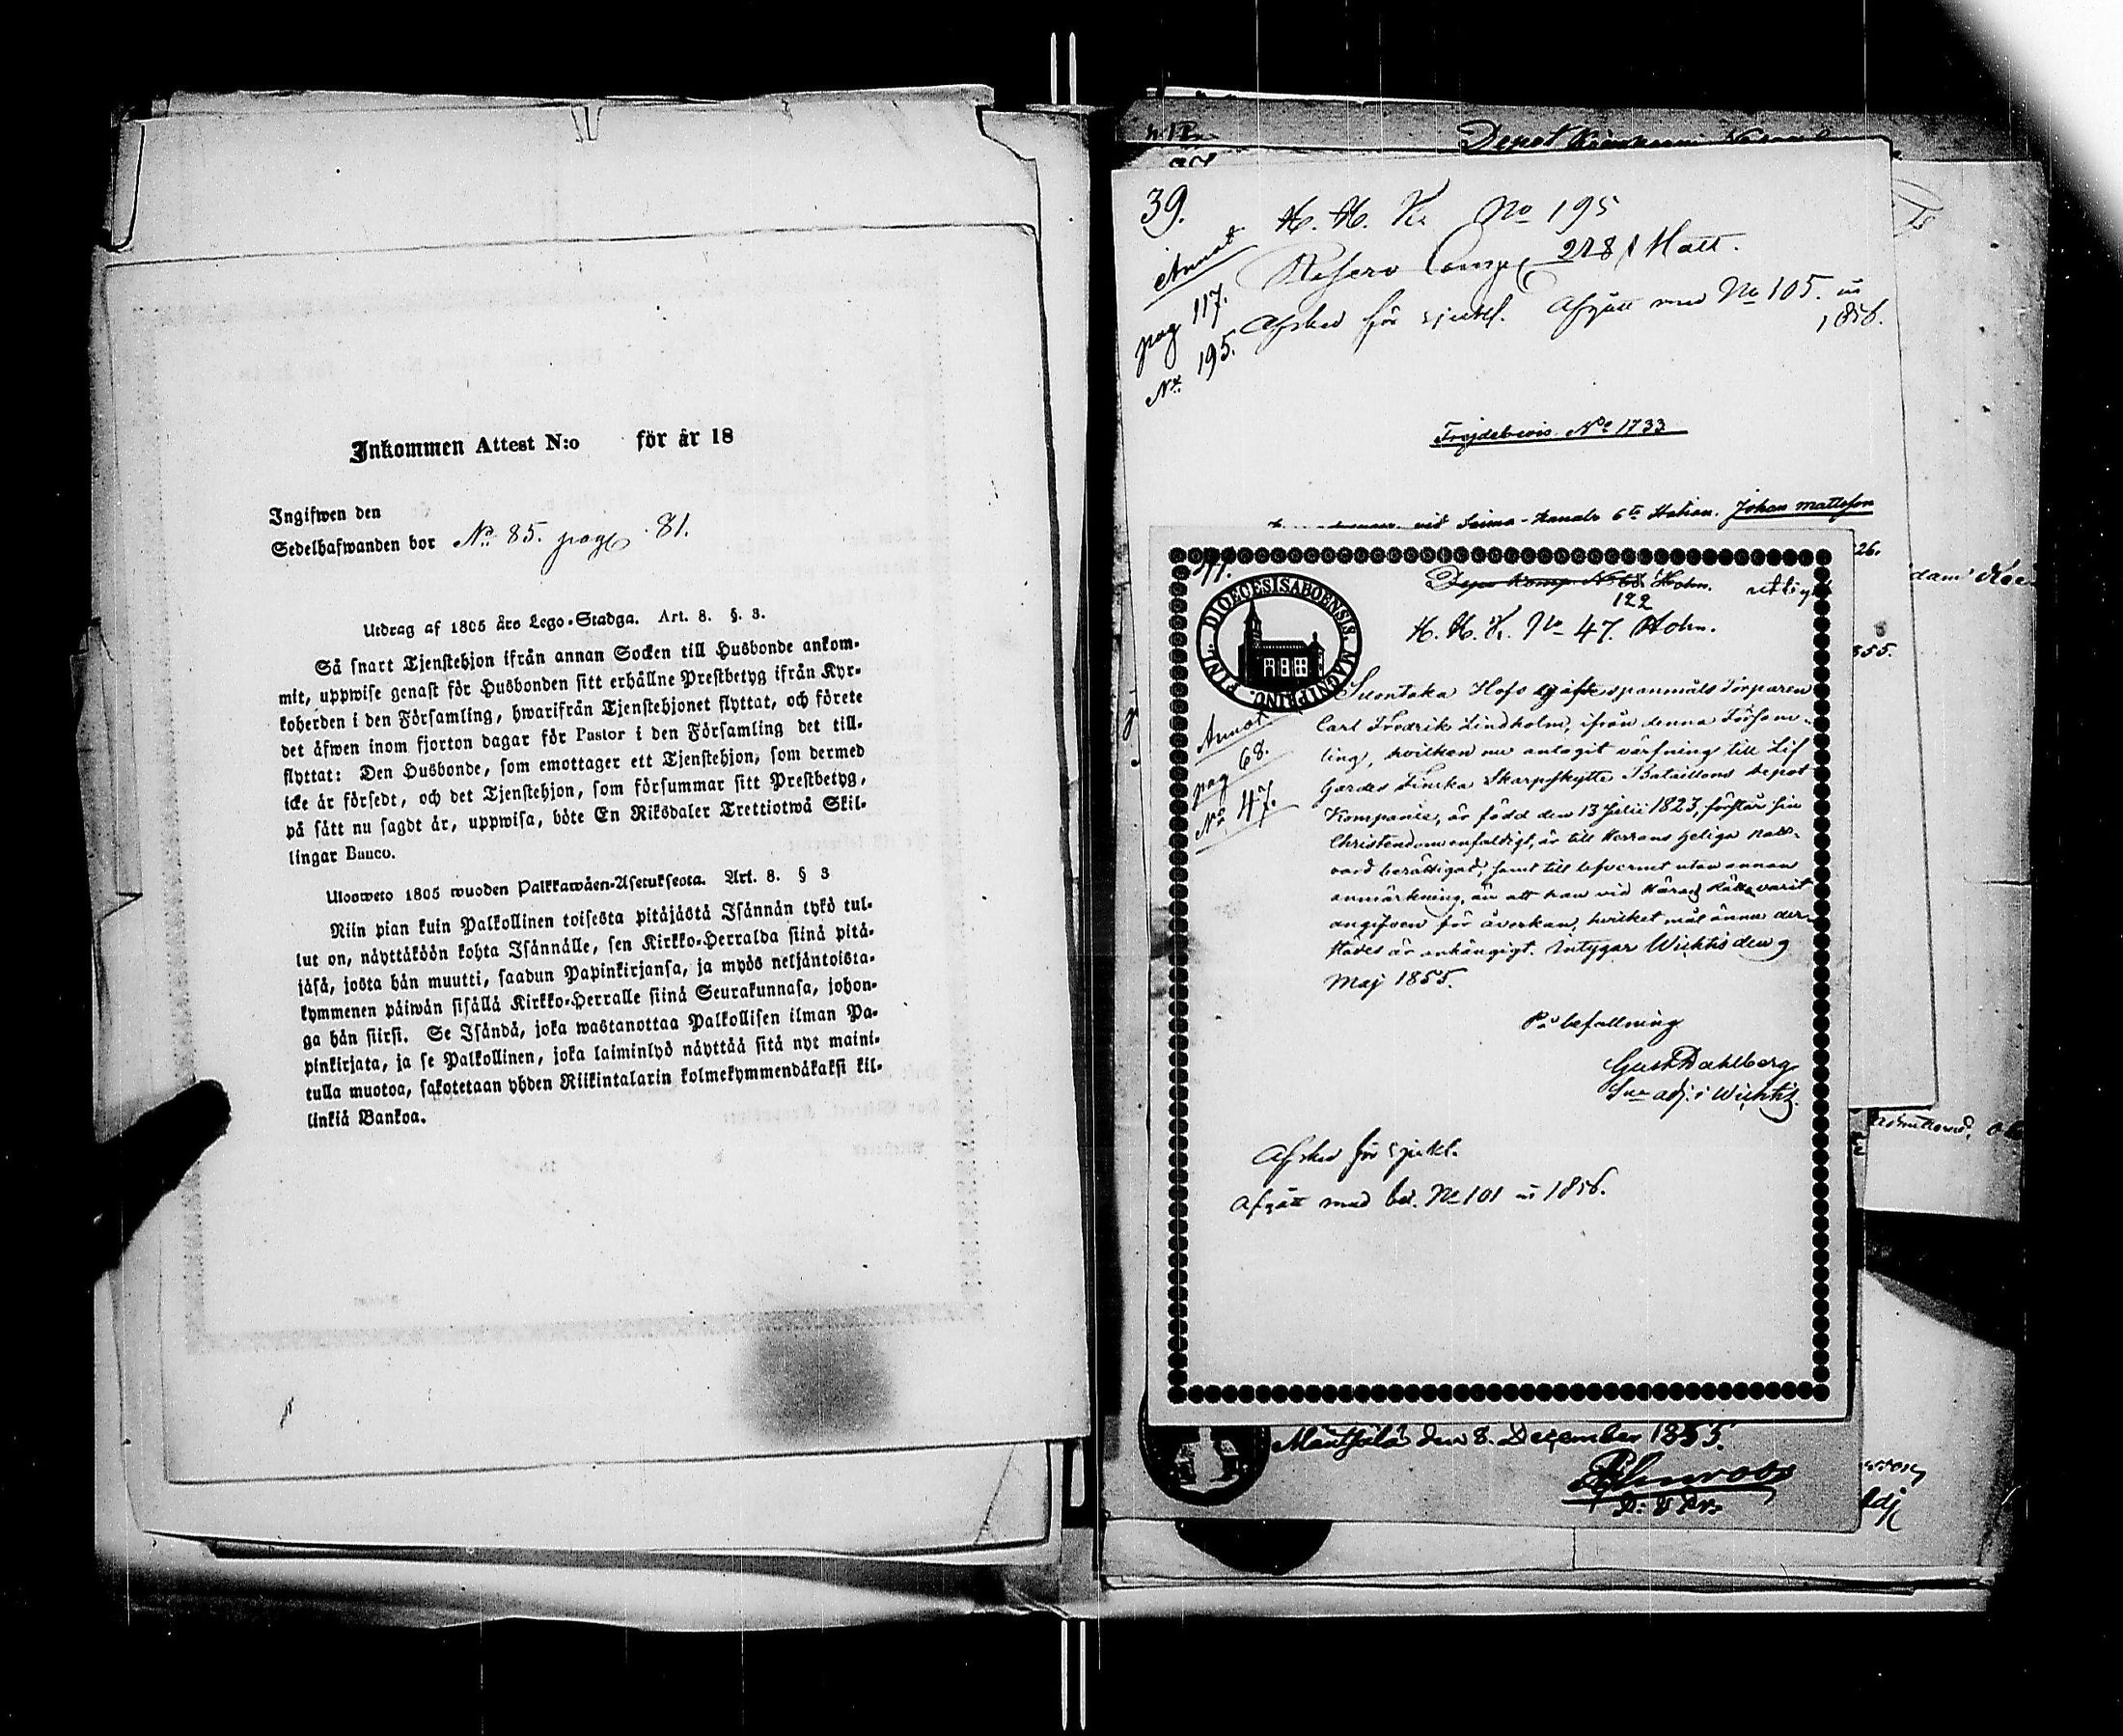 Inkommen Attest N:o för år 18
Ingifwen den
Sedelhafwanden bor No 85. pag 81.
Utdrag af 1805 års Lego-Stadga. Art. 8. §. 3.
Så snart Tjenstehjon ifrån annan Socken till Husbonde ankom-
mit, uppwise genast för Husbonden sitt erhållne Prestbetyg ifrån Kyr-
koherden i den Församling, hwarifrån Tjenstehjonet flyttat, och förete
det äfwen inom fjorton dagar för Pastor i den Församling det till-
flyttat: Den Husbonde, som emottager ett Tjenstehjon, som dermed
icke är försedt, och det Tjenstehjon, som försummar sitt Prestbetyg,
på sätt nu sagdt är, uppwisa, böte En Riksdaler Trettiotwå Skil-
lingar Banco.
Uloosweto 1805 wuoden Palkkawäen-Asetuksesta. Art. 8. § 3
Niin pian kuin Palkollinen toisesta pitäjästä Isännän tykö tul-
lut on, näyttäköön kohta Isännälle, sen Kirkko-Herralda siinä pitä-
jäsä, josta hän muutti, saadun Papinkirjansa, ja myös neljäntoista-
kymmenen päiwän sisällä Kirkko-Herralle siinä Seurakunnasa, johon-
ga hän siirsi. Se Isändä, joka wastanottaa Palkollisen ilman Pa-
pinkirjata, ja se Palkollinen, joka laiminlyö näyttää sitä nyt maini-
tulla muotoa, sakotetaan yhden Riikintalarin kolmekymmendäkaksi kil-
linkiä Bankoa.
39.
H. H. K. No 195
Annot
Reserv Comp 218 Matt.
pag 117.
Afsked för sjukl. Afgått med No 105. in
1856.
No 195.
Frejdebevis No 1733
vid Saima-Kanals 6te Station. Johan Mattsson
26.
855.
DIOECESIS ABOENSIS. MAGNI PRINC. FINL.
Depot Komp. No 68 Holm.
122
H. H. K. No 47. Holm.
Annot
pag 68.
No 47.
Suontaka Hofs spanmåls Torparen
Carl Fredrik Lindholm, ifrån denna Försam-
ling, hvilken nu antagit värfning till Lif
Gardes Finska Skarpskytte Bataillons Depot
Kompanie, är född den 13 Julii 1823, förstår sin
Christendom enfaldigt, är till Herrans Heliga natt-
vard berättigad, samt till lefvernet utan annan
anmärkning, än att han vid Härads Rätt varit
angifven för åverkan, hvilket mål ännu der-
städes är anhängigt. Intygar Wichtis den 9
Maj 1855.
På befallning
Gust Dahlberg
adj. i Wichtis.
Afsked för sjukl.
Afgått med bet. No 101 in 1856.
Mäntsälä den 8. December 1855.